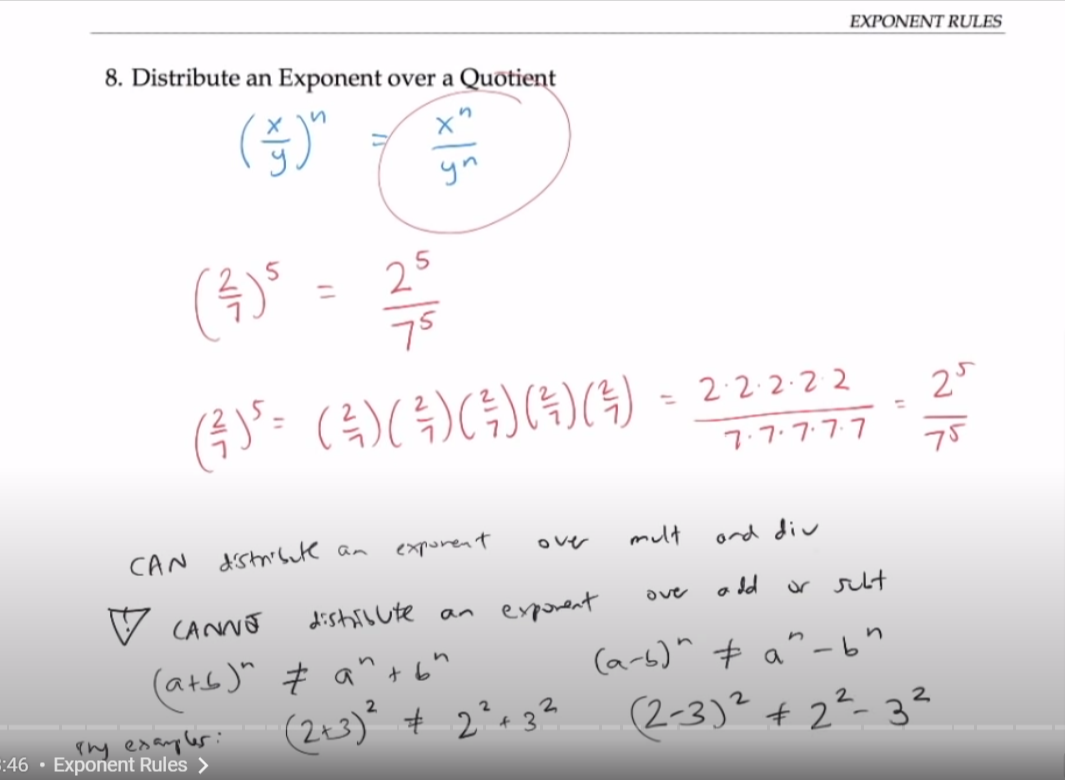 EXPONENT RULES
8. Distribute an Exponent over a Quotient
(x/y)ⁿ = xⁿ/yⁿ
(2/7)⁵ = 2⁵/7⁵
(2/7)⁵ = (2/7)(2/7)(2/7)(2/7)(2/7) = 2·2·2·2·2/7·7·7·7·7 = 2⁵/7⁵
CAN distribute an exponent over mult and div
! CANNOT distribute an exponent over add or subt
(a+b)ⁿ ≠ aⁿ + bⁿ (a-b)ⁿ ≠ aⁿ - bⁿ
examples: (2+3)² ≠ 2² + 3² (2-3)² ≠ 2² - 3²
:46 • Exponent Rules >